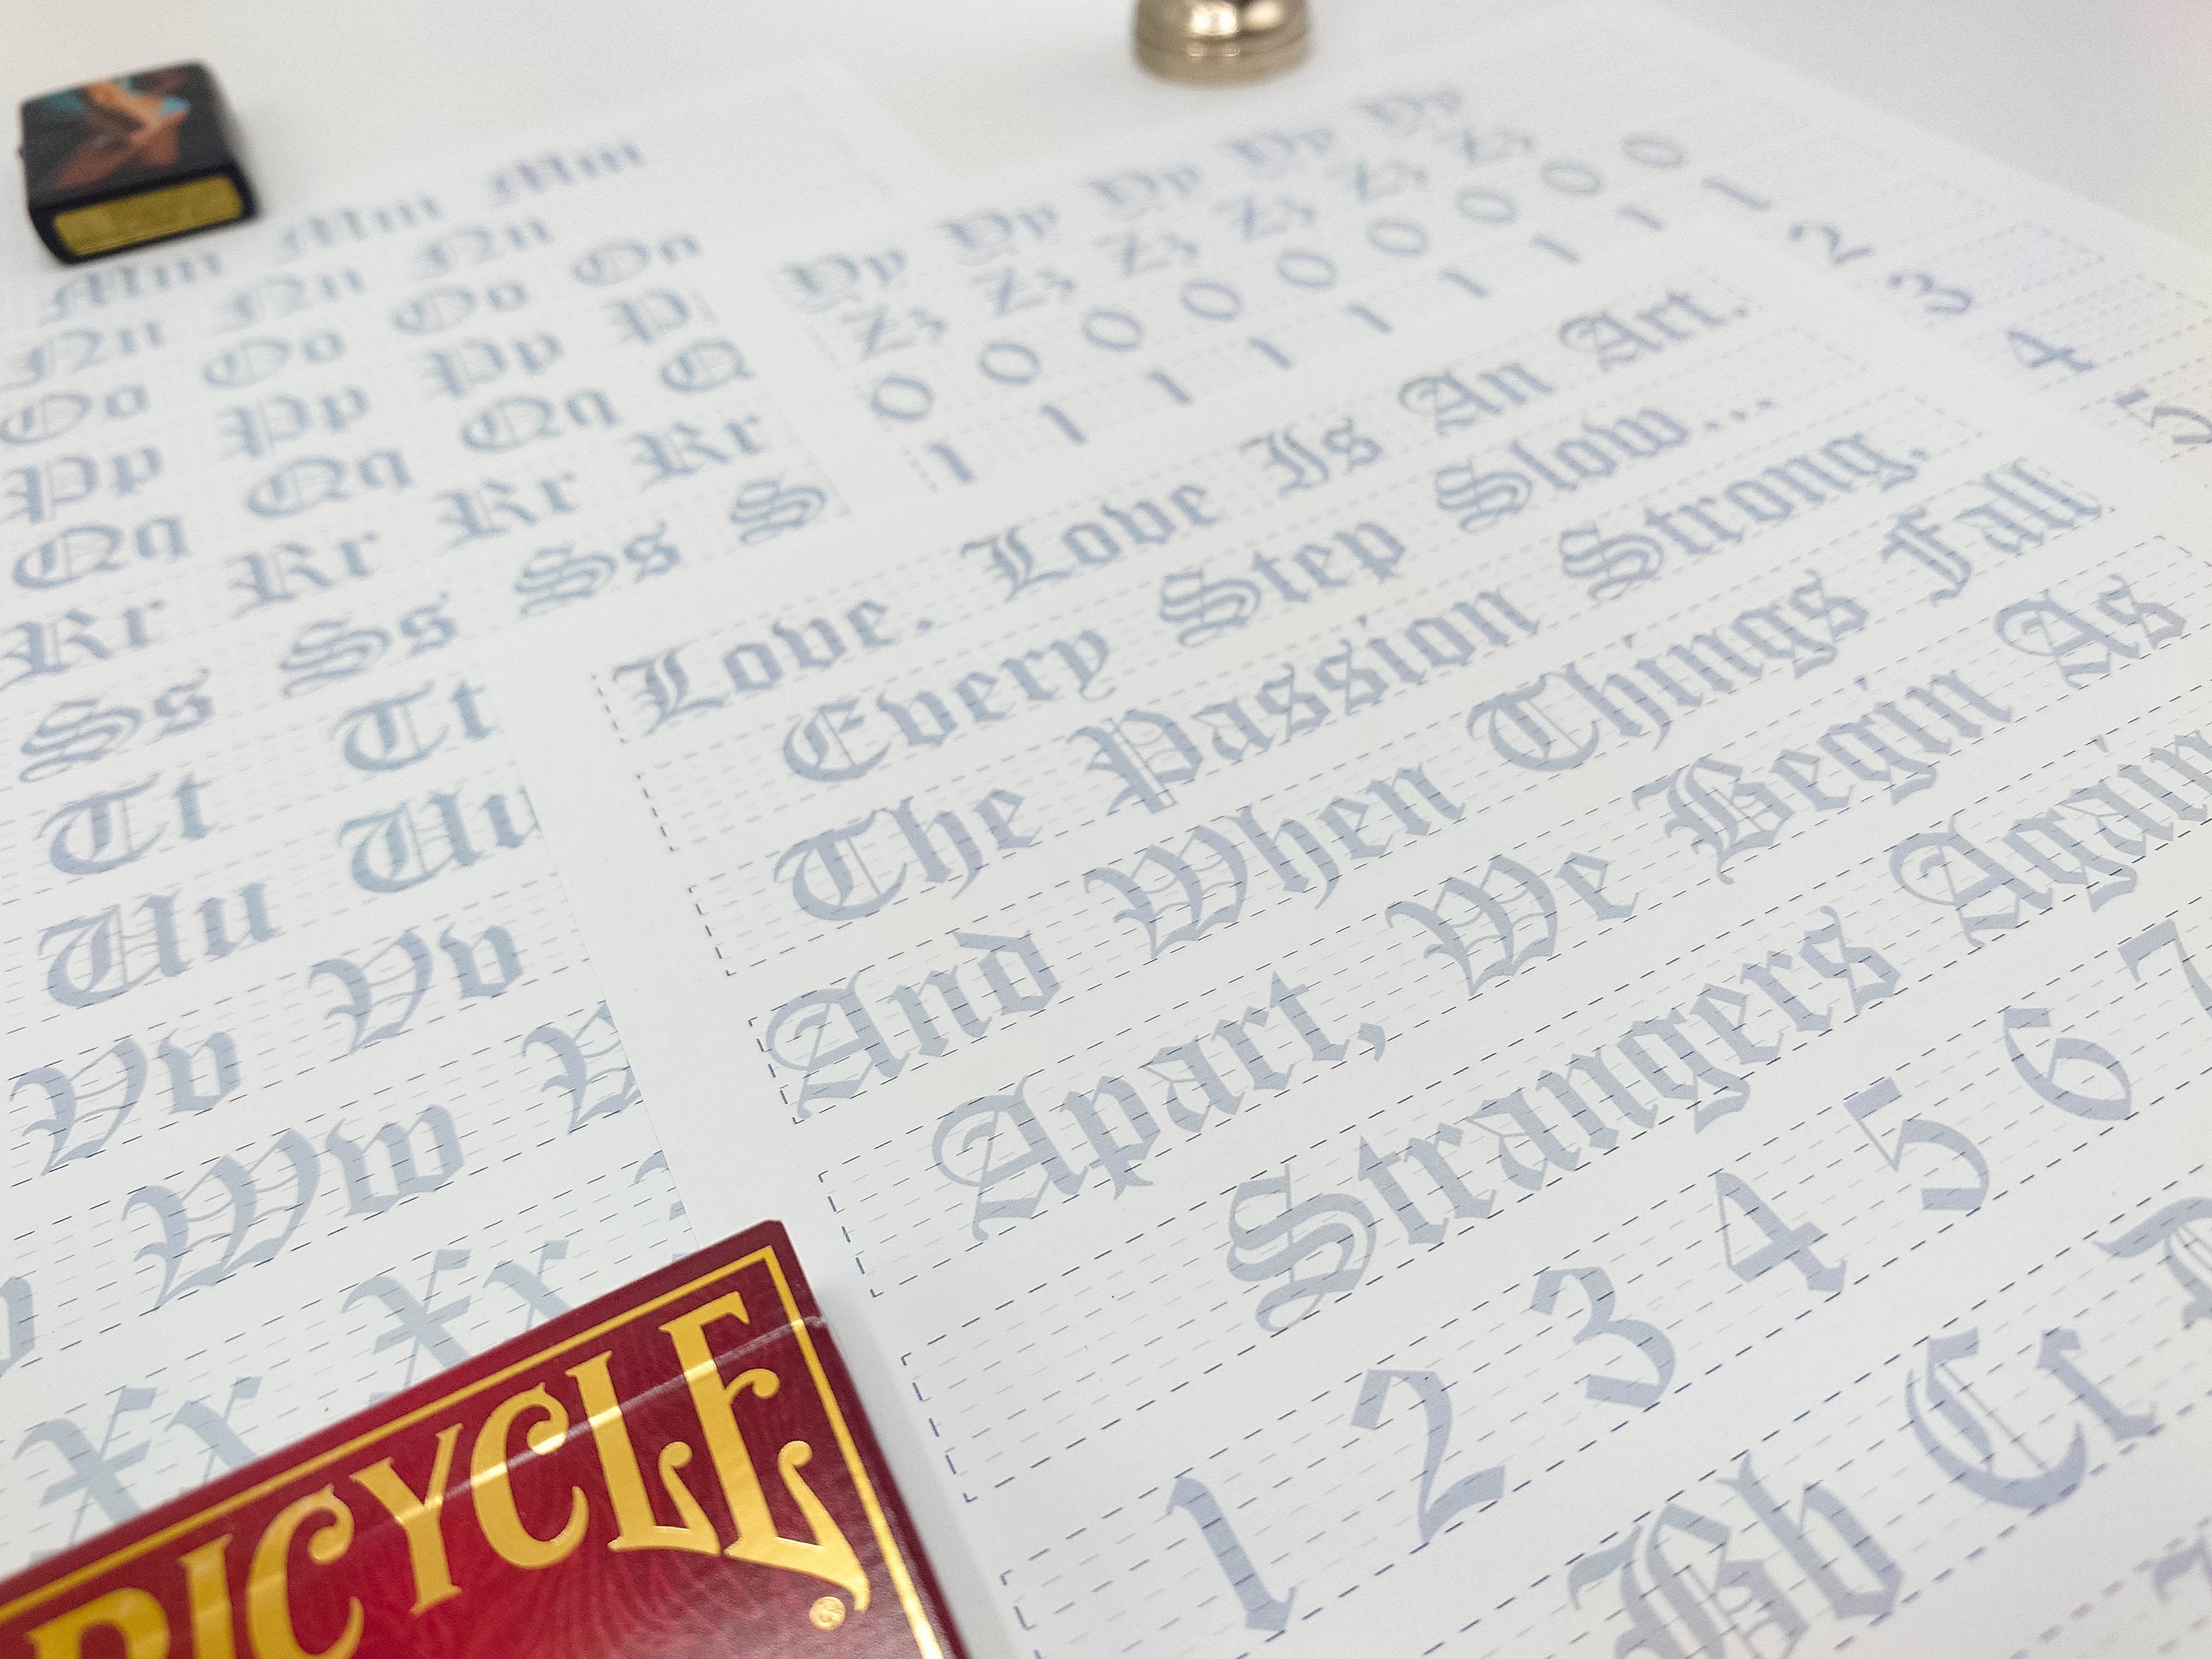 Mm Mm Mm
Nn Nn Nn
Oo Oo Oo On
Pp Pp Pp P
Qq Qq Qq Q
Rr Rr Rr Rr
Ss Ss Ss S
Tt Tt
Uu Uu
Vv Vv
Ww
Xx Xx
Yy Yy Yy Yy Yy
Zz Zz Zz Zz Zz
0 0 0 0 0 0 0 0 0
1 1 1 1 1 1 1 1
1 2 3 4 5
Love. Love Is An Art.
Every Step Slow...
The Passion Strong.
And When Things Fall
Apart, We Begin As
Strangers Again
1 2 3 4 5 6 7
Bb Cc
BICYCLE®